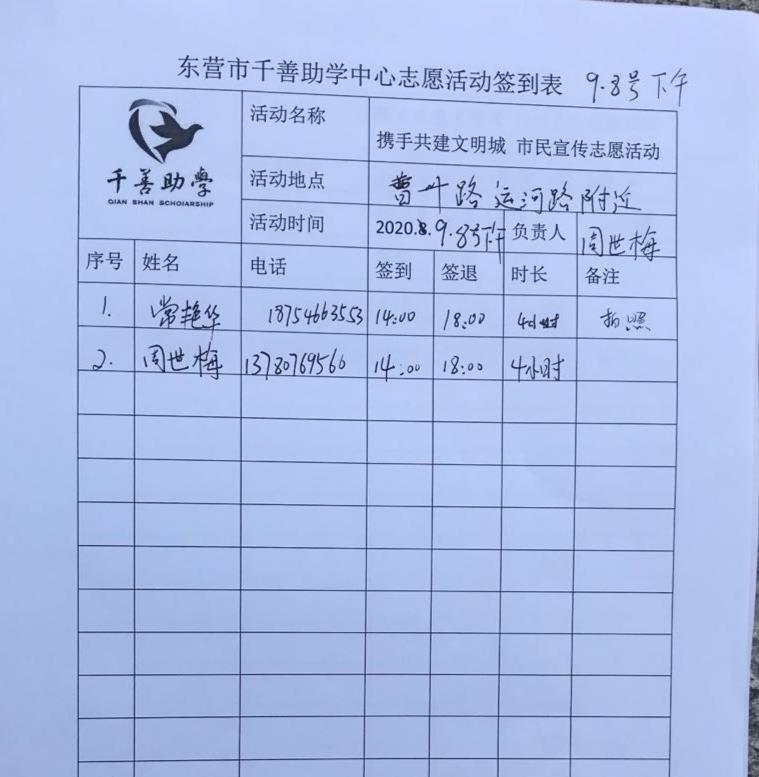 东营市千善助学中心志愿活动签到表 9.8号下午
千善助学
QIAN SHAN SCHOlARSHIP
活动名称 携手共建文明城 市民宣传志愿活动
活动地点 曹州路运河路附近
活动时间 2020.8.9.8号下午 负责人 周世梅
序号 姓名 电话 签到 签退 时长 备注
1. 常艳华 18754663553 14:00 18:00 4小时 拍照
2. 周世梅 13780769560 14:00 18:00 4小时